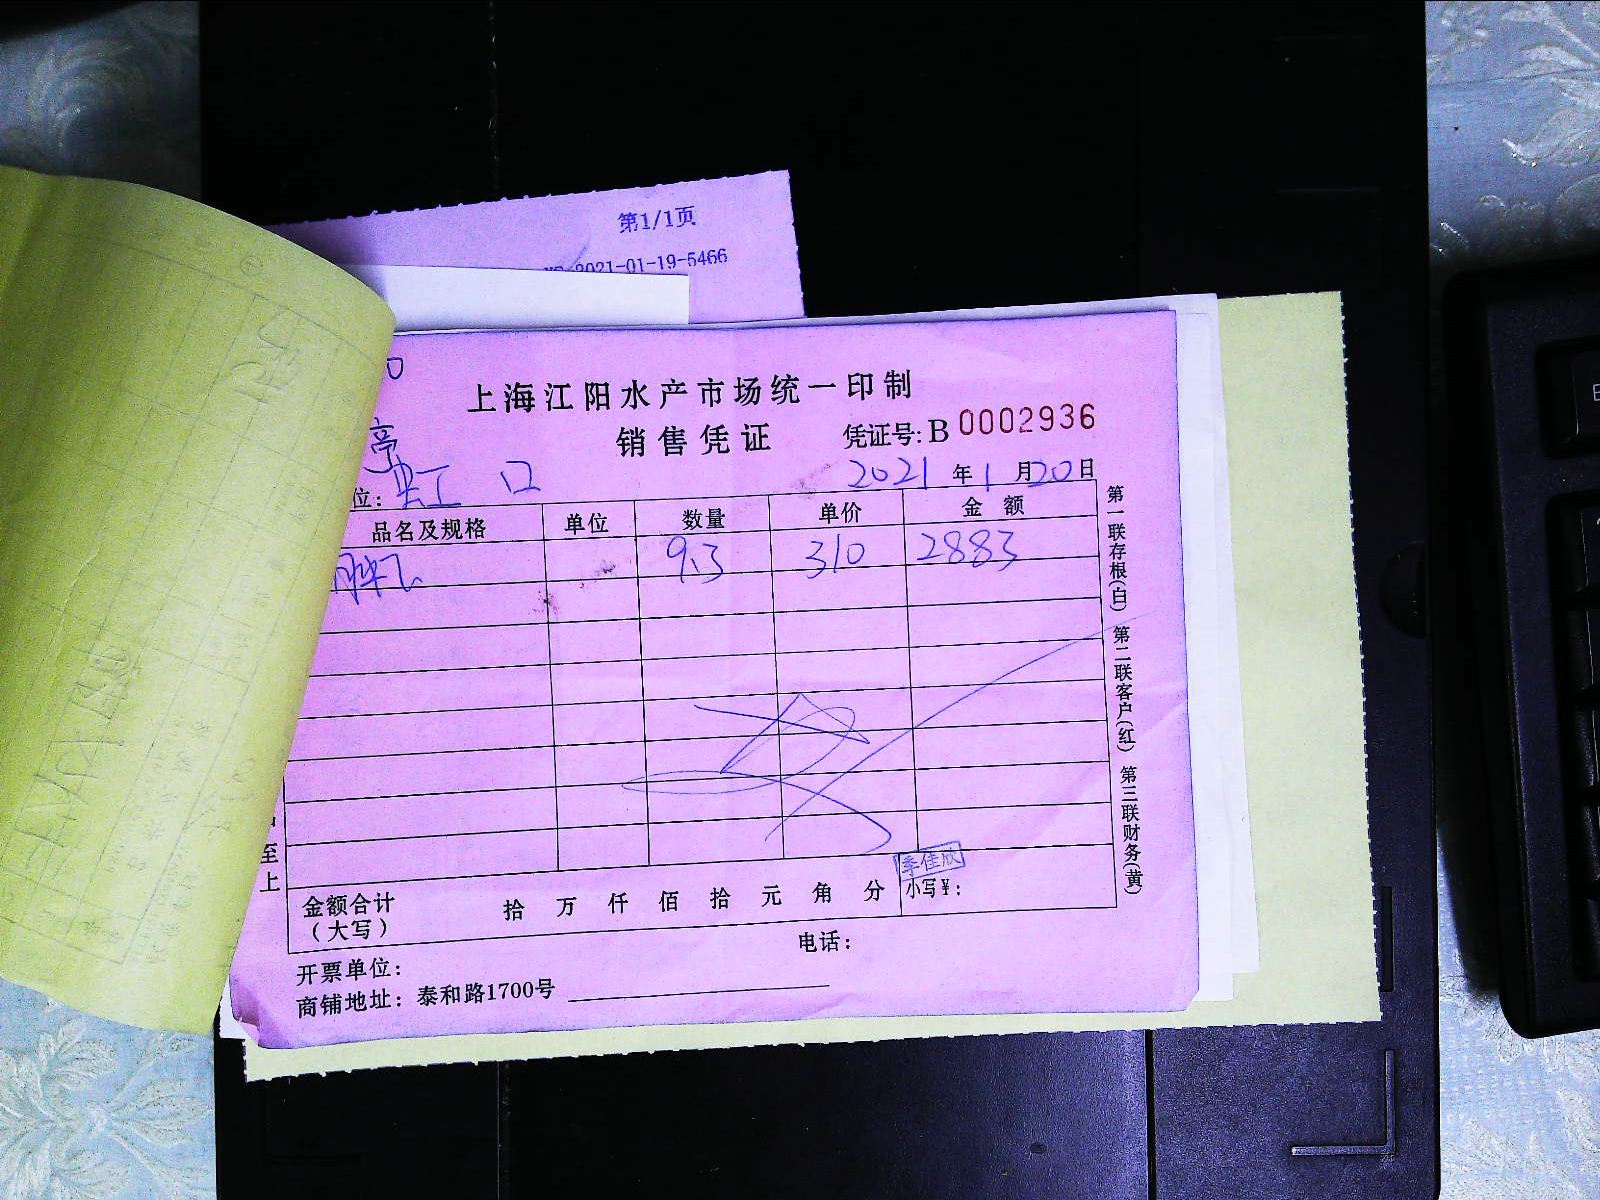 第1/1页
2021-01-19-5466
上海江阳水产市场统一印制
销售凭证 凭证号:B 0002936
亭
位: 虹口 2021年1月20日
品名及规格 单位 数量 单价 金额
9.3 310 2883
第一联存根(白) 第二联客户(红) 第三联财务(黄)
至上
季佳欣
金额合计(大写) 拾 万 仟 佰 拾 元 角 分 小写¥:
开票单位: 电话:
商铺地址: 泰和路1700号